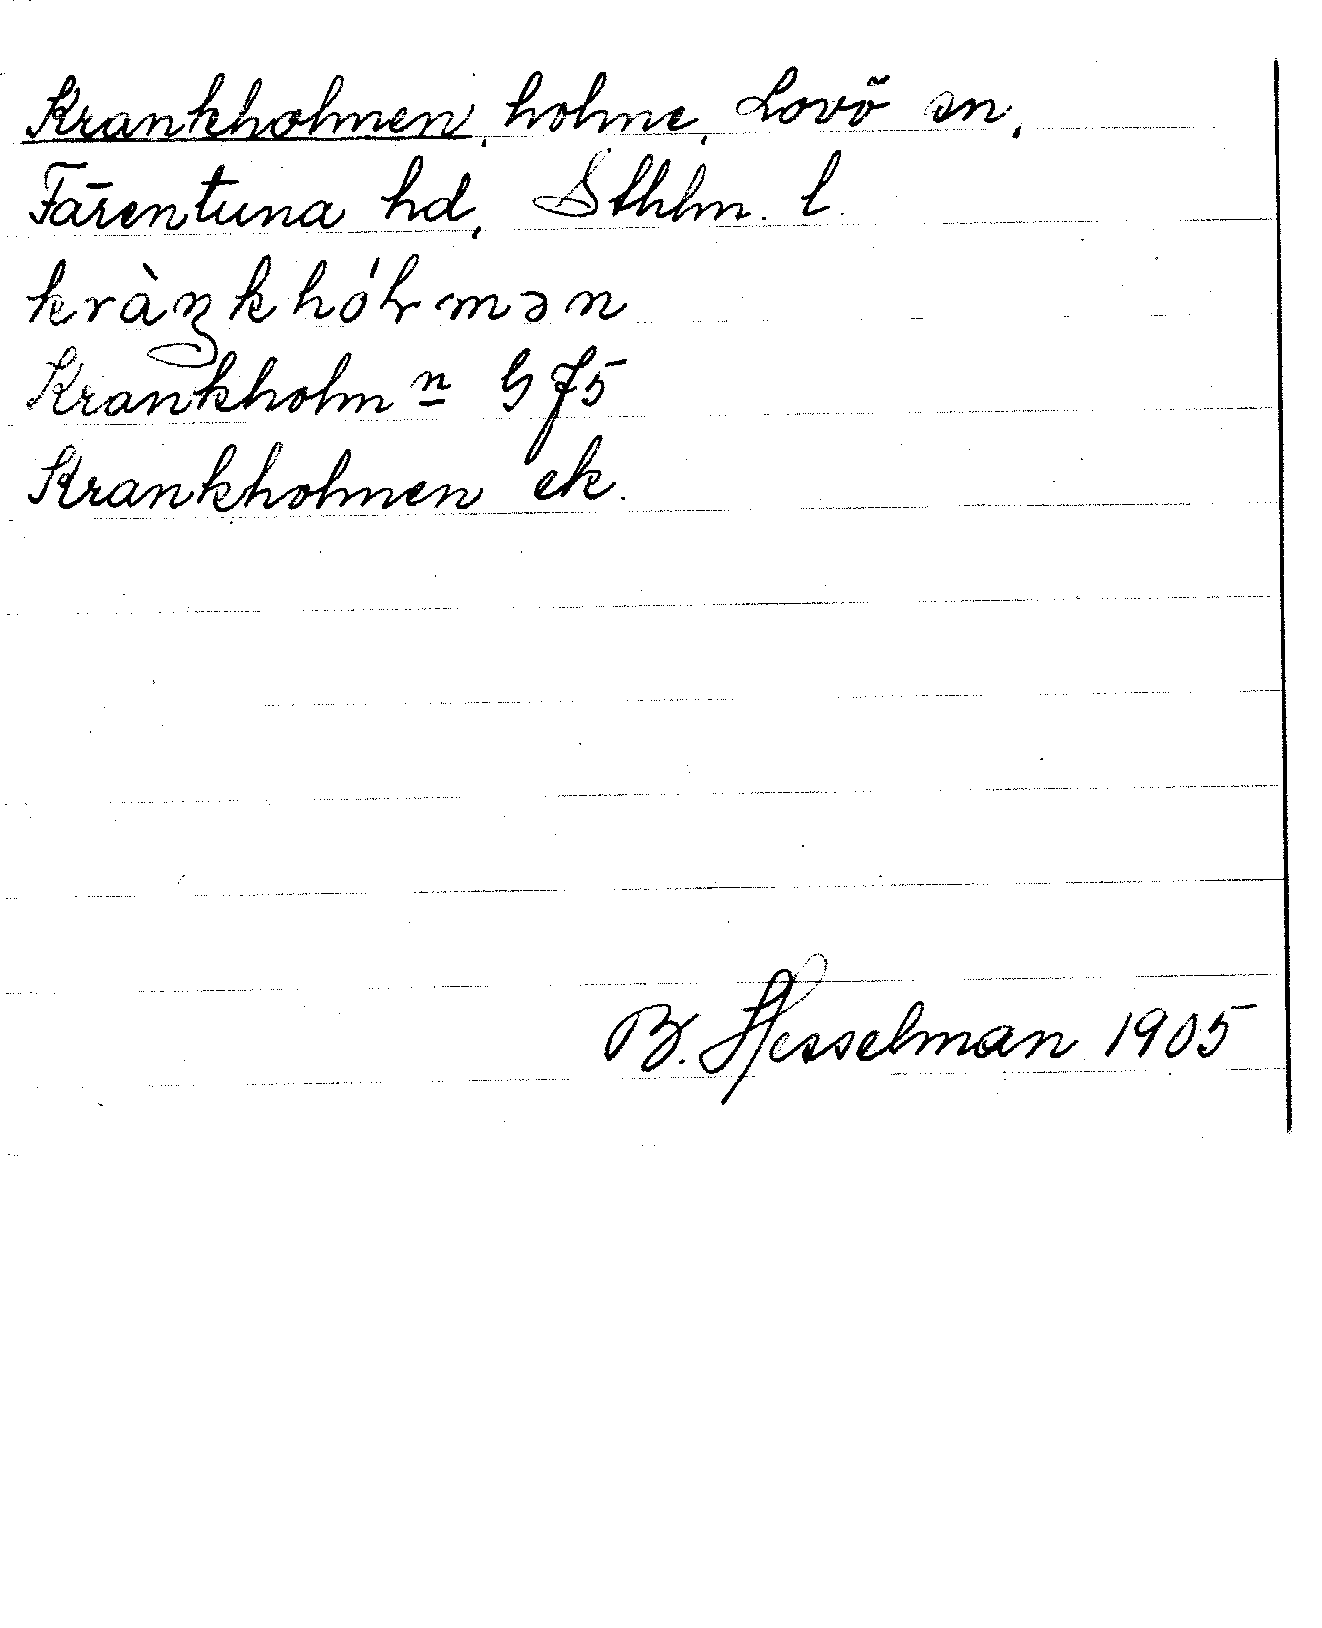 Krankholmen, holme, Lovö sn,
Färentuna hd, Sthlm. l.
kràŋkhólmən
Krankholmn G 75
Krankholmen ek.
B. Hesselman 1905